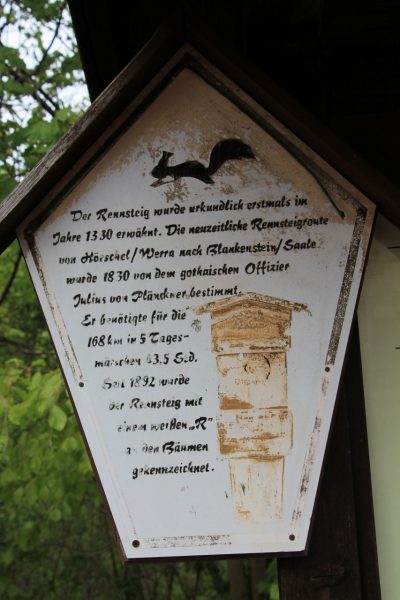 Der Rennsteig wurde urkundlich erstmals im
Jahre 1330 erwähnt. Die neuzeitliche Rennsteigroute
von Hörschel/Werra nach Blankenstein/Saale
wurde 1830 von dem gothaischen Offizier
Julius von Plänckner bestimmt.
Er benötigte für die
168 km in 5 Tages-
märschen 43,5 Std.
Seit 1892 wurde
der Rennsteig mit
einem weißen „R"
an den Bäumen
gekennzeichnet.